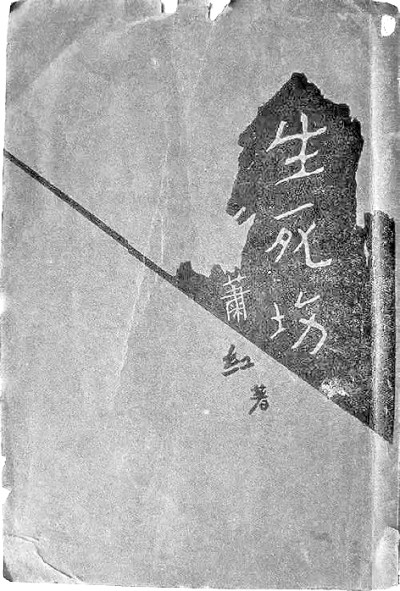 生死场
蕭红著